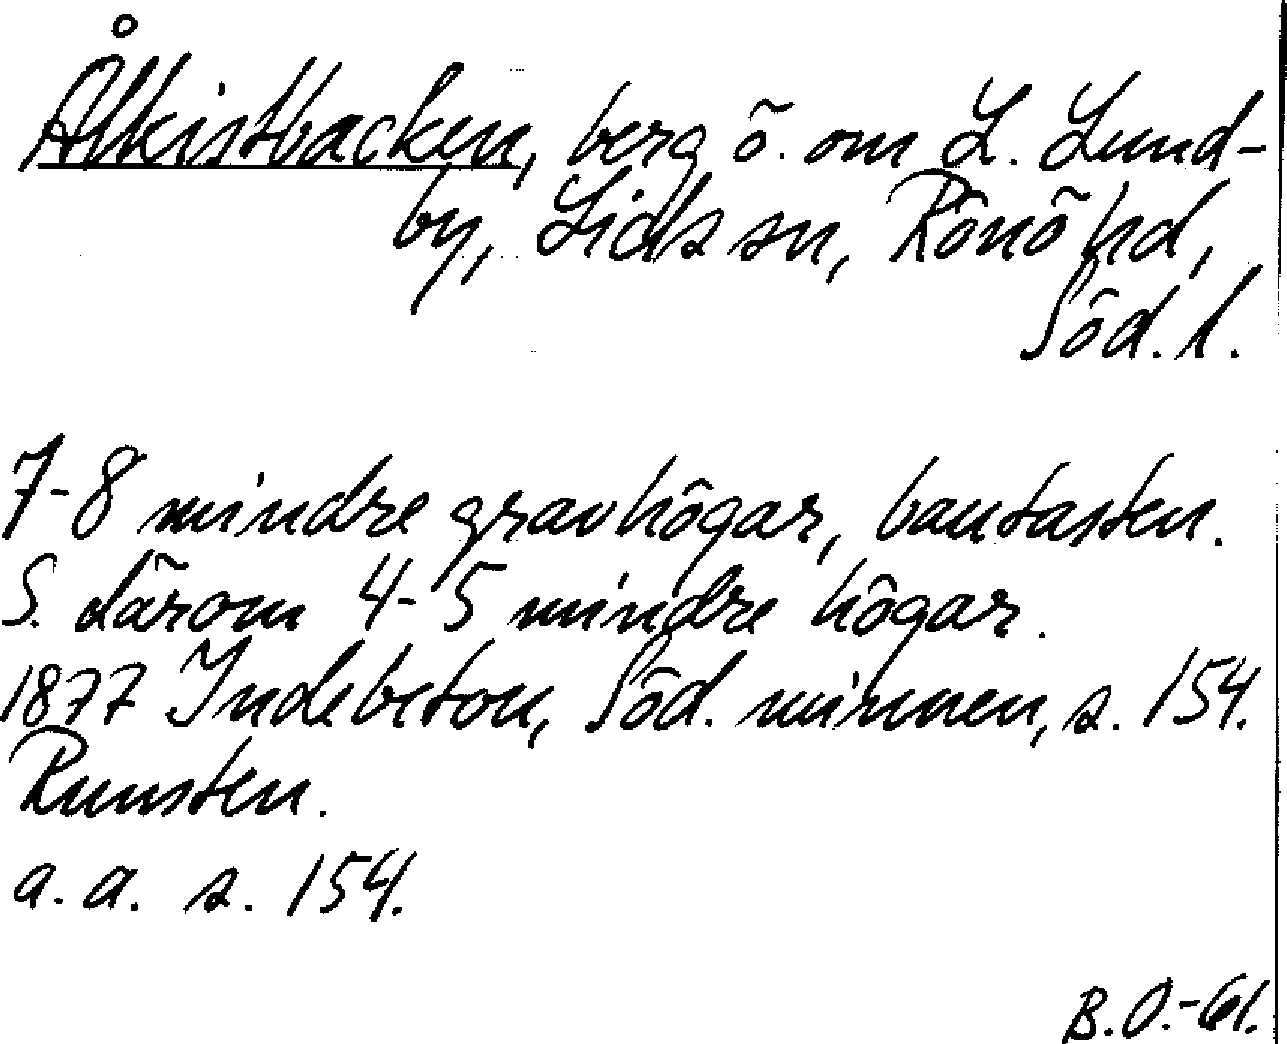 Ålkistbacken, berg ö. om L. Lund-
by, Lids sn, Rönö hd,
Söd. l.
7-8 mindre gravhögar, bautasten.
S. därom 4-5 mindre högar.
1877 Indebetou, Söd. minnen, s. 154.
Runsten.
a. a. s. 154.
B.O.-61.